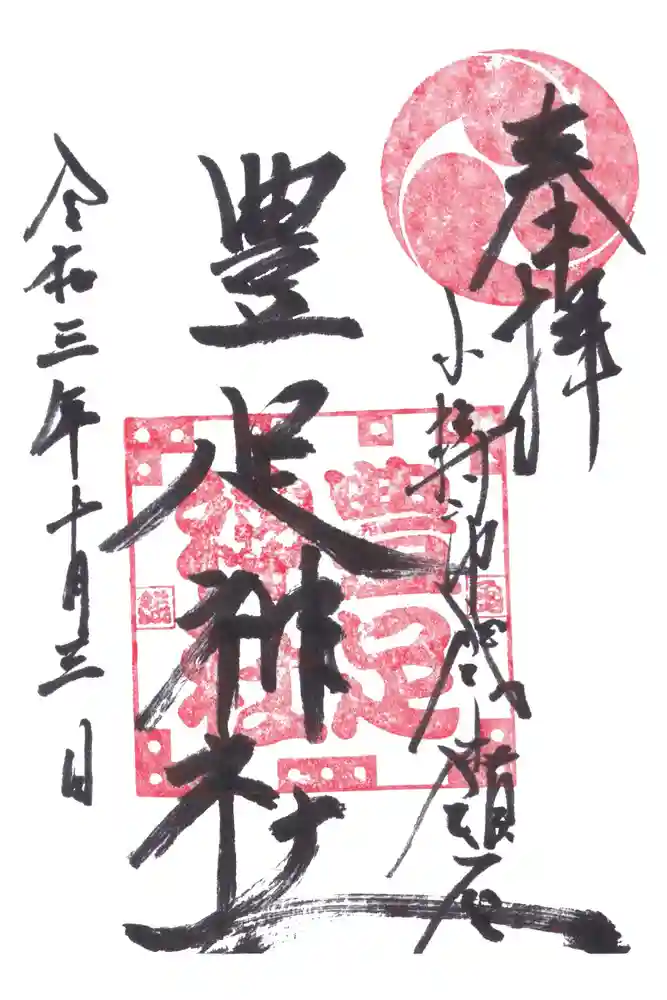 奉拝
小樽市銭函鎮座
豊足神社
令和三年十月三日
豊足
神社